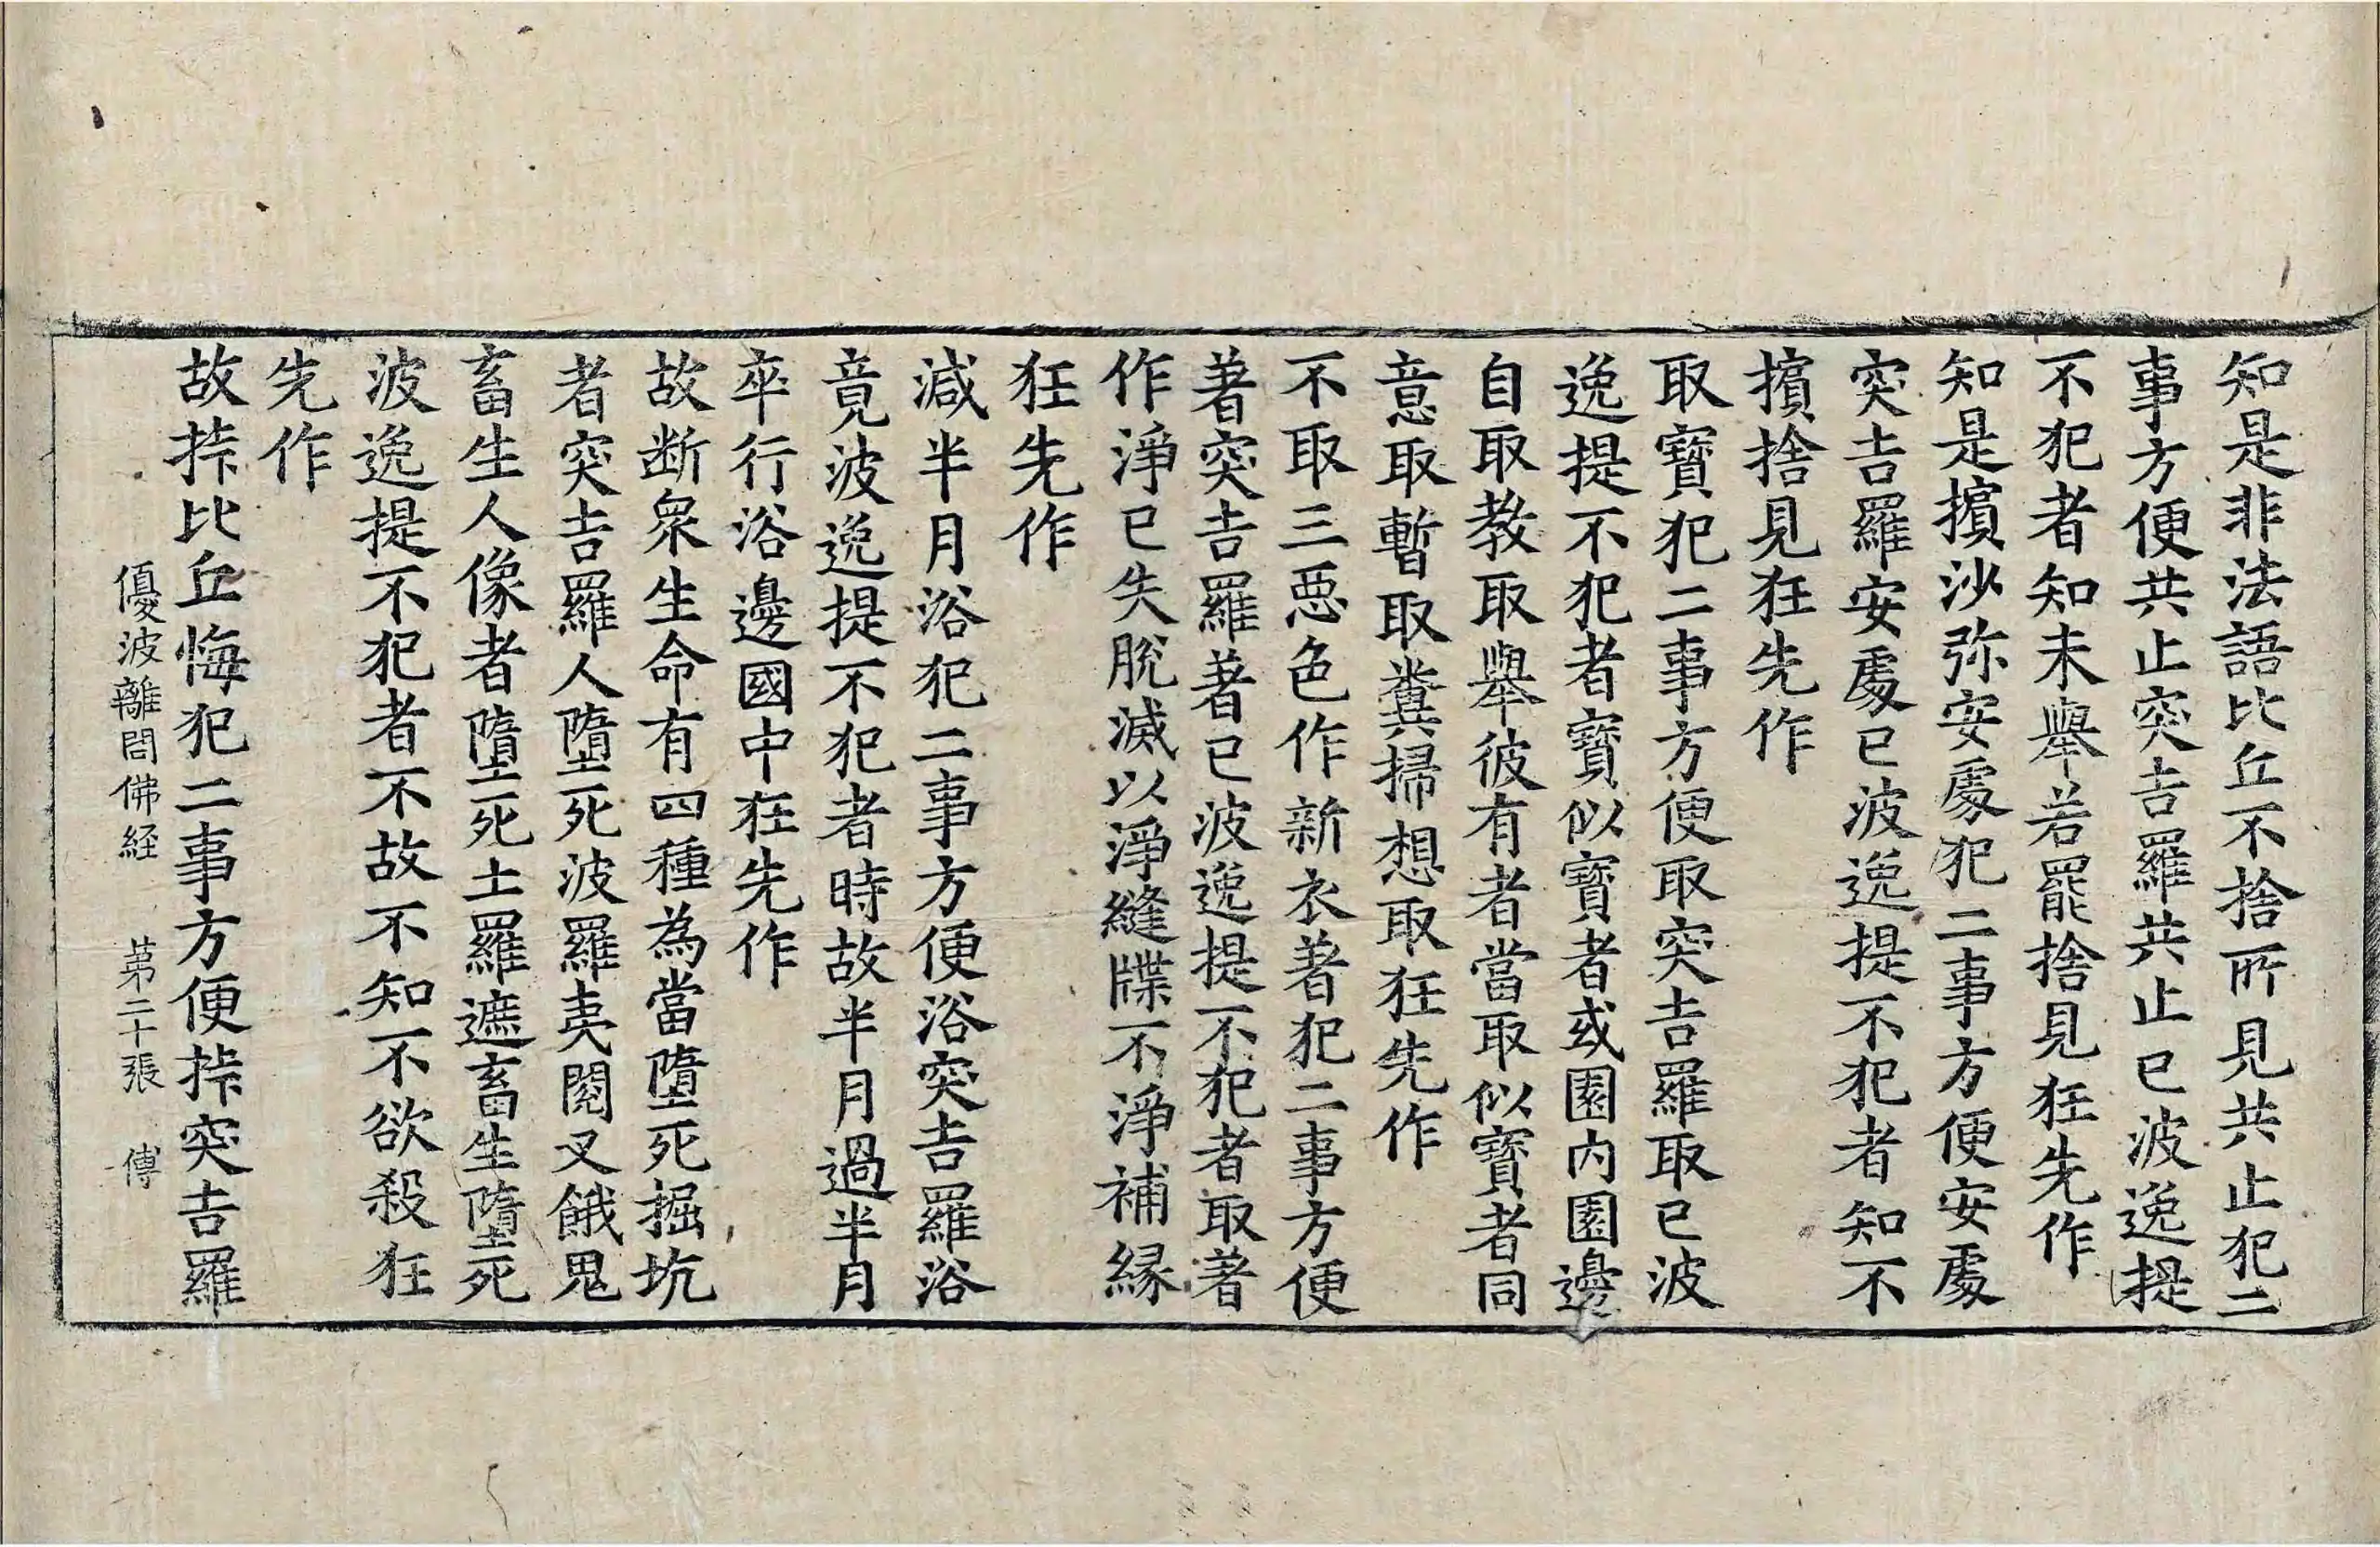 知是非法語比丘不捨所見共止犯二
事方便共止突吉羅共止已波逸提
不犯者知未舉若罷捨見狂先作
知是擯沙弥安處犯二事方便安處
突吉羅安處已波逸提不犯者知不
擯捨見狂先作
取寶犯二事方便取突吉羅取已波
逸提不犯者寶似寶者或園内園邊
自取教取舉彼有者當取似寶者同
意取暫取糞掃想取狂先作
不取三惡色作新衣著犯二事方便
著突吉羅著已波逸提不犯者取著
作淨已失脫滅以淨縫牒不淨補緣
狂先作
減半月浴犯二事方便浴突吉羅浴
竟波逸提不犯者時故半月過半月
卒行浴邊國中狂先作
故断衆生命有四種為當墮死掘坑
者突吉羅人墮死波羅夷閱叉餓鬼
畜生人像者墮死土羅遮畜生墮死
波逸提不犯者不故不知不欲殺狂
先作
故㧻比丘悔犯二事方便㧻突吉羅
優波離問佛経 苐二十張 傅